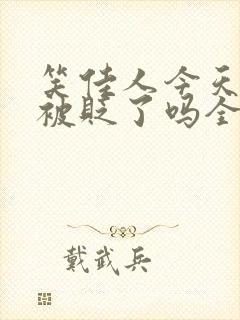 笑佳人今天
被贬了吗全
戴武兵